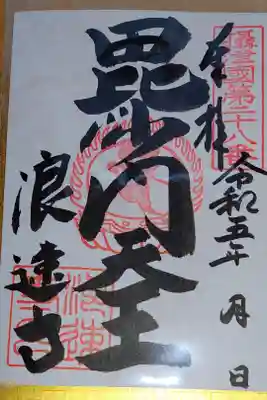 奉拝
令和五年 月 日
毘沙门天王
浪速寺
摂津國第二十八番
浪速寺